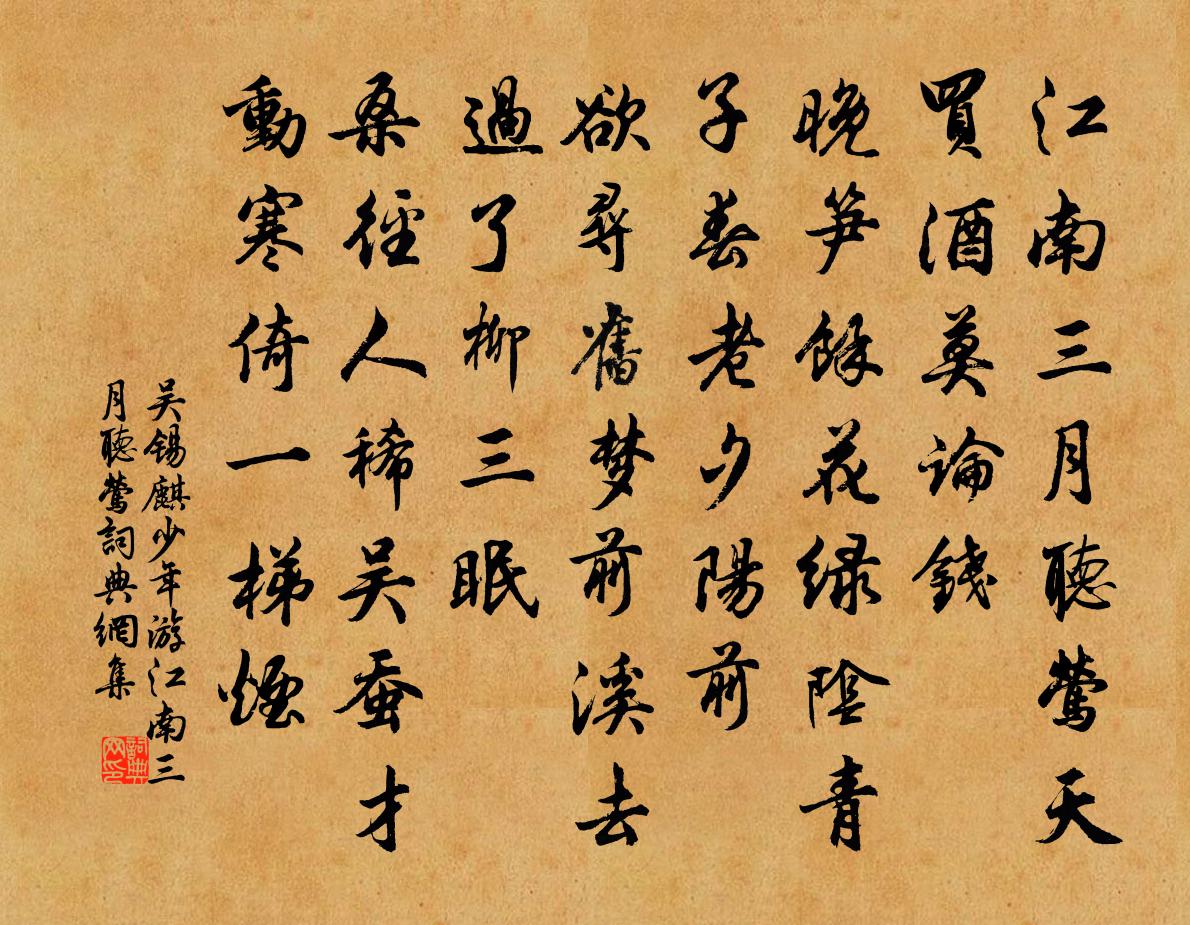 江南三月聽鶯天
買酒莫論錢
晚笋餘花綠陰青
子春老夕陽前
欲尋舊梦前溪去
過了柳三眠
桑徑人稀吴蚕才
動寒倚一梯煙
吴錫麒少年游江南三
月聽鶯詞典網集
詞典网印